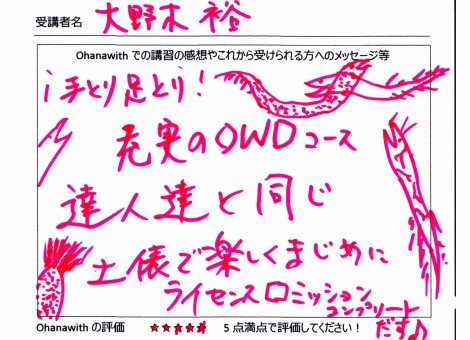 受講者名 大野木 裕
Ohanawith での講習の感想やこれから受けられる方へのメッセージ等
¡手とり足とり！
充実のOWDコース
達人達と同じ
土俵で楽しくまじめに
ライセンスロミッション
コンプリート
だす♪
Ohanawith の評価 ★★★★★ 5点満点で評価してください！